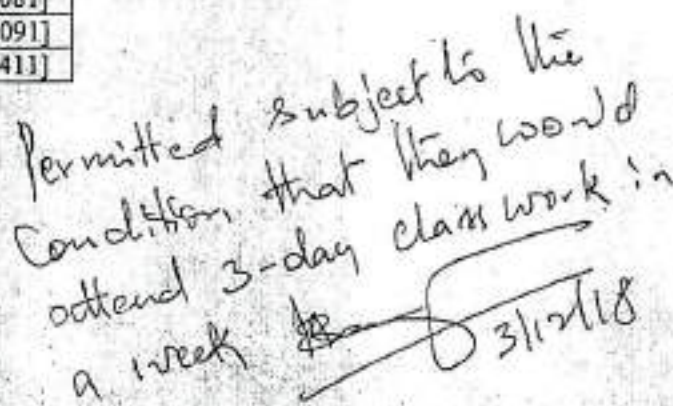 091]
411]
Permitted subject to the
Condition that they would
attend 3-day class work in
a week
3/12/18